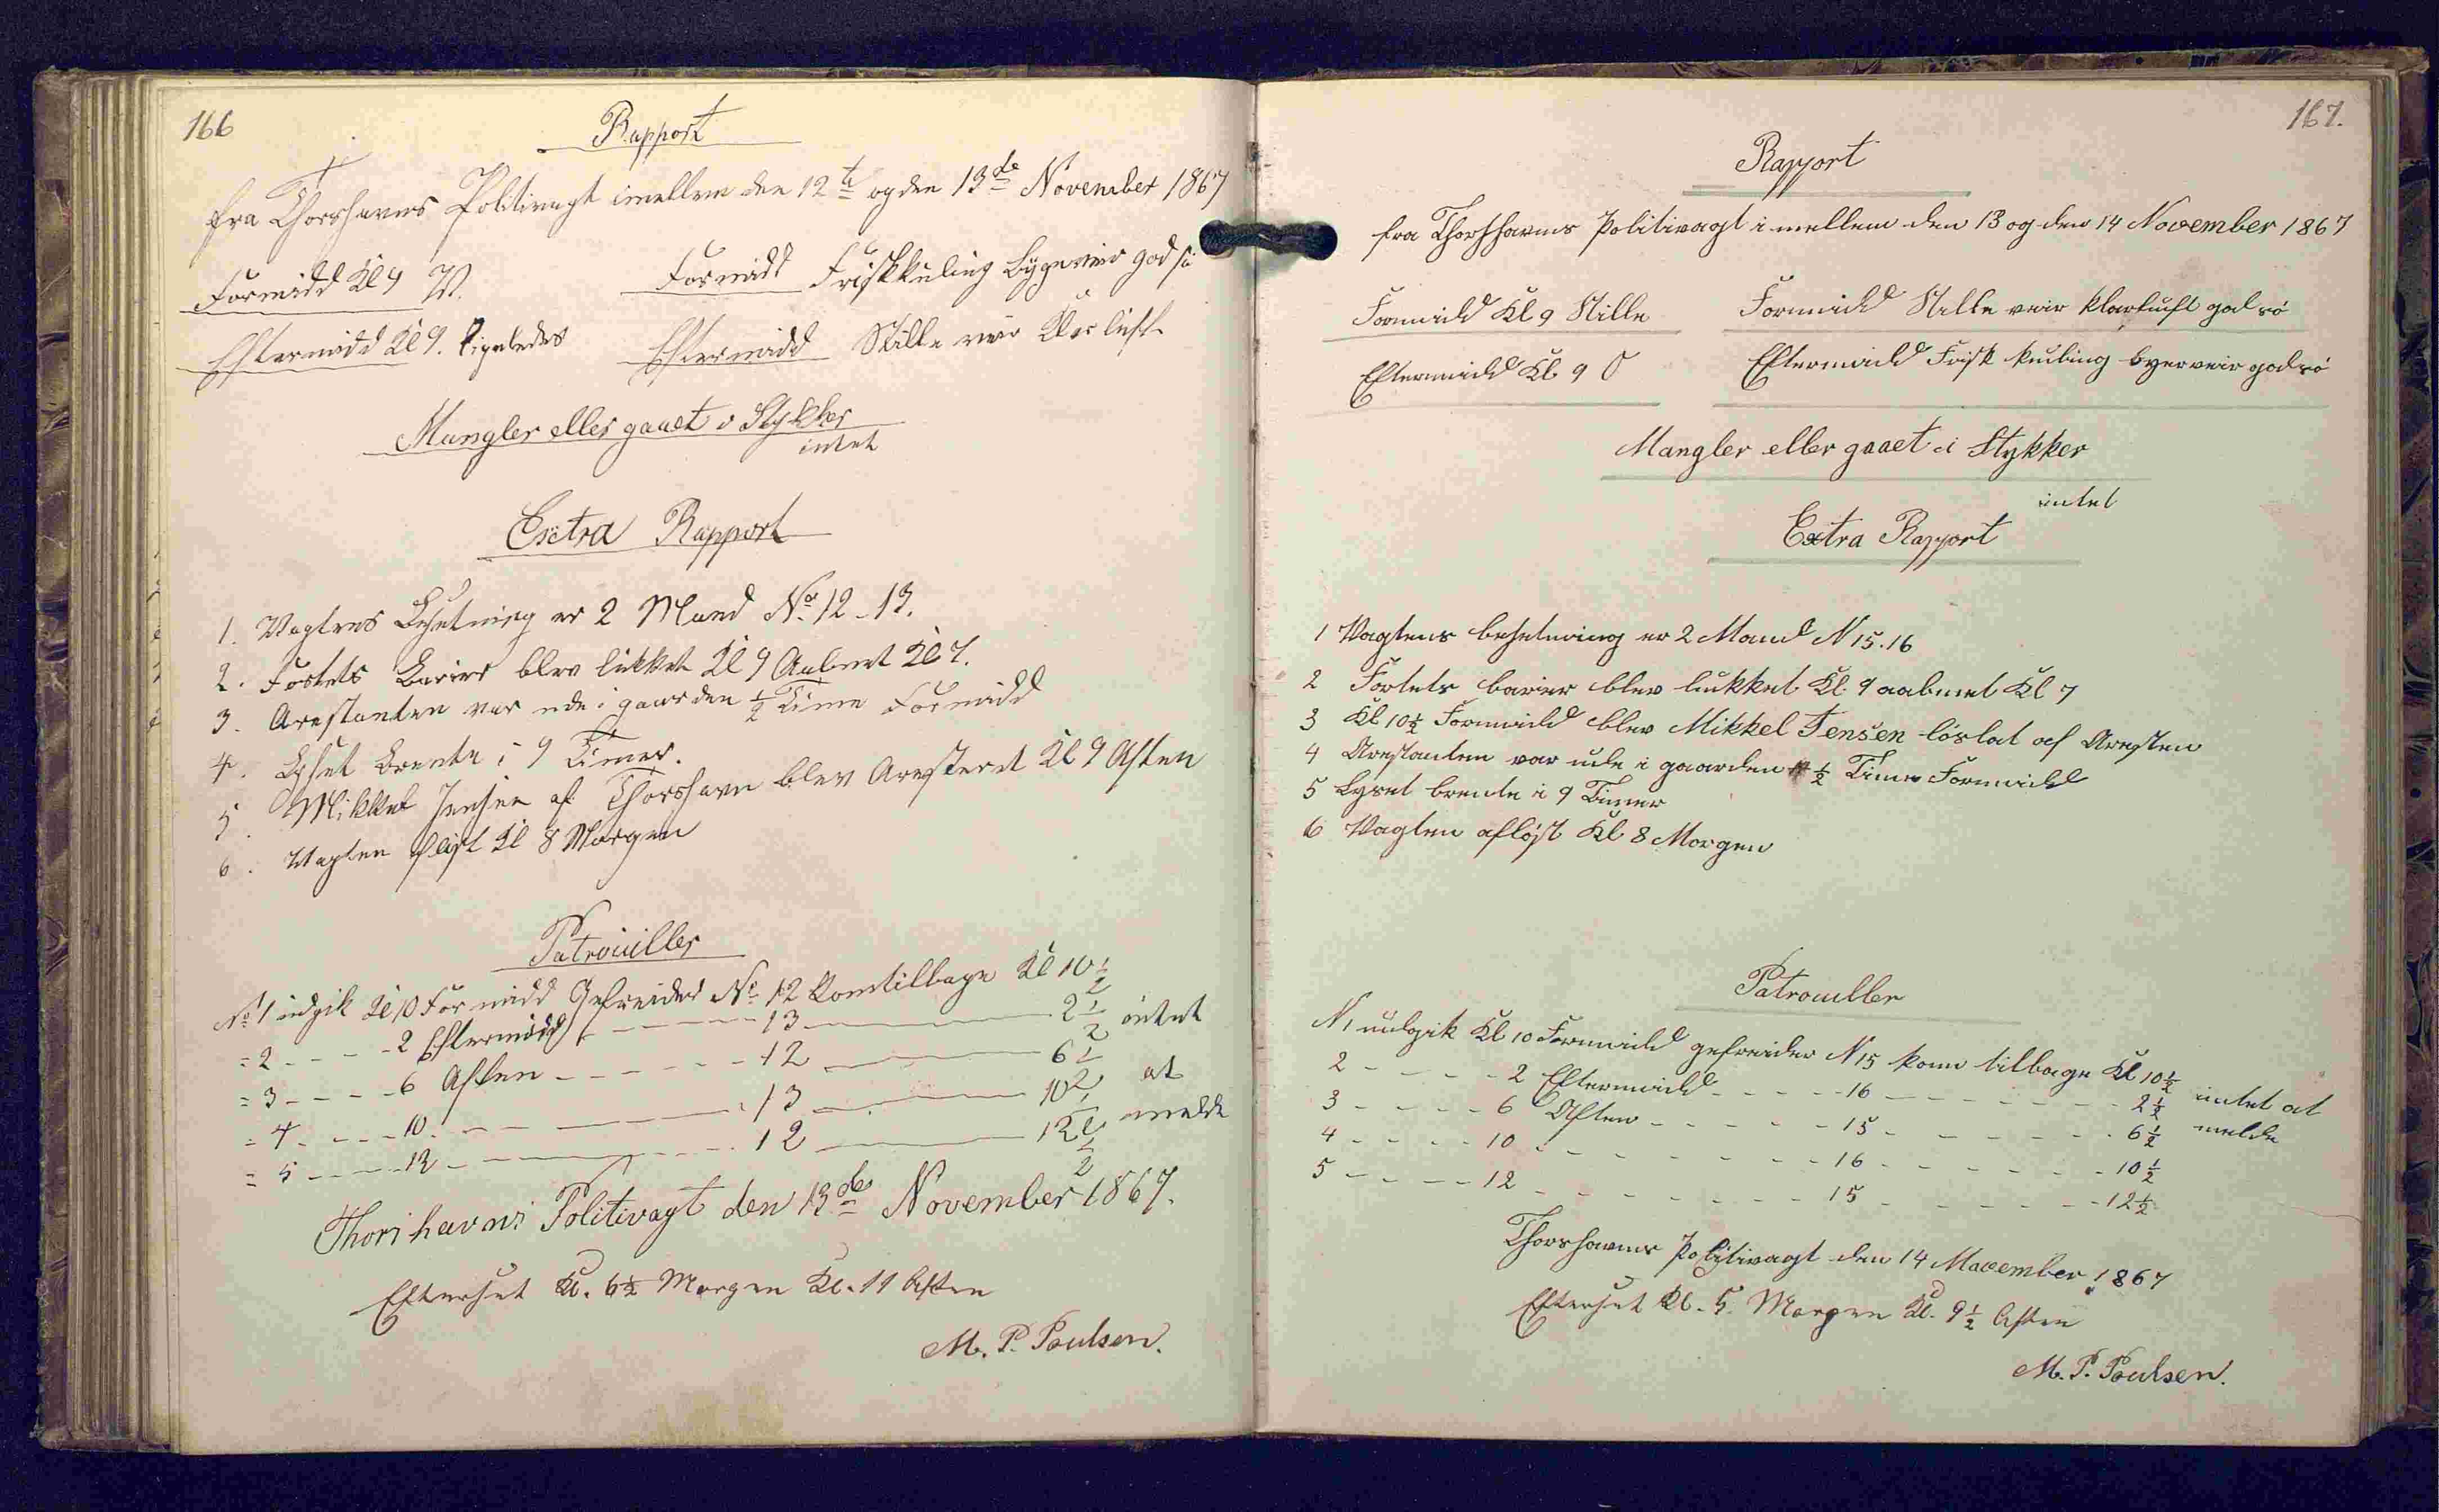 166
Rapport
fra Thorshavns Politivagt imellem den 12te og den 13de November 1867
Formidd Kl 9 W. Formidd Friskkuling bygeveir god sö
Eftermidd Kl 9. Ligeledes Eftermidd Stille veir Klar luft
Mangler eller gaaet i Stykker
intet
Exstra Rapport
1. Vagtens Besetning er 2 Mand No. 12-13.
2. Fortets Barier blev lukket Kl 9 Aabnet Kl 7.
3. Arestanten var ude i gaarden ½ Time Formidd
4. Lyset brente i 9 Timer.
5. Mikkel Jensen af Thorshavn blev Aresteret Kl 9 Aften
6. Vagten aflöst Kl 8 Morgen
Patrouiller
No. 1 udgik Kl 10 Formidd Gefreider No. 12 Kom tilbage Kl 10½
= 2 - - - - 2 Eftermidd - - - - 13 - - - - 2½ intet
= 3 - - - - 6 Aften - - - - 12 - - - - 6½
= 4 - - - - 10 - - - - 13 - - - - 10½ at
= 5 - - - - 12 - - - - 12 - - - - 12½ melde
Thorshavns Politivagt den 13de November 1867.
Efterset Kl. 6½ Morgen Kl. 11 Aften
M. P. Poulsen.
167.
Rapport
fra Thorshavns Politivagt i mellem den 13 og den 14 November 1867
Formidd Kl 9 Stille Formidd Stille veir klarluft god sö
Eftermidd Kl 9 O Eftermidd Frisk kuling byerveir god sö
Mangler eller gaaet i Stykker
intet
Extra Rapport
1 Vagtens besetning er 2 Mand N 15.16
2 Fortets barier blev lukket Kl. 9 aabnet Kl 7
3 Kl 10½ Formidd blev Mikkel Jensen löslat af Aresten
4 Arestanten var ude i gaarden ½ Time Formidd
5 Lyset brente i 9 Timer
6 Vagten aflöst Kl 8 Morgen
Patrouiller
N 1 udgik Kl 10 Formidd gefreider N 15 kom tilbage Kl 10½
2 - - - - 2 Eftermidd - - - - 16 - - - - 2½ intet at
3 - - - - 6 Aften - - - - 15 - - - - 6½ melde
4 - - - - 10 - - - - 16 - - - - 10½
5 - - - - 12 - - - - 15 - - - - 12½
Thorshavns Politivagt den 14 November 1867
Efterset Kl. 5. Morgen Kl. 9½ Aften
M. P. Poulsen.